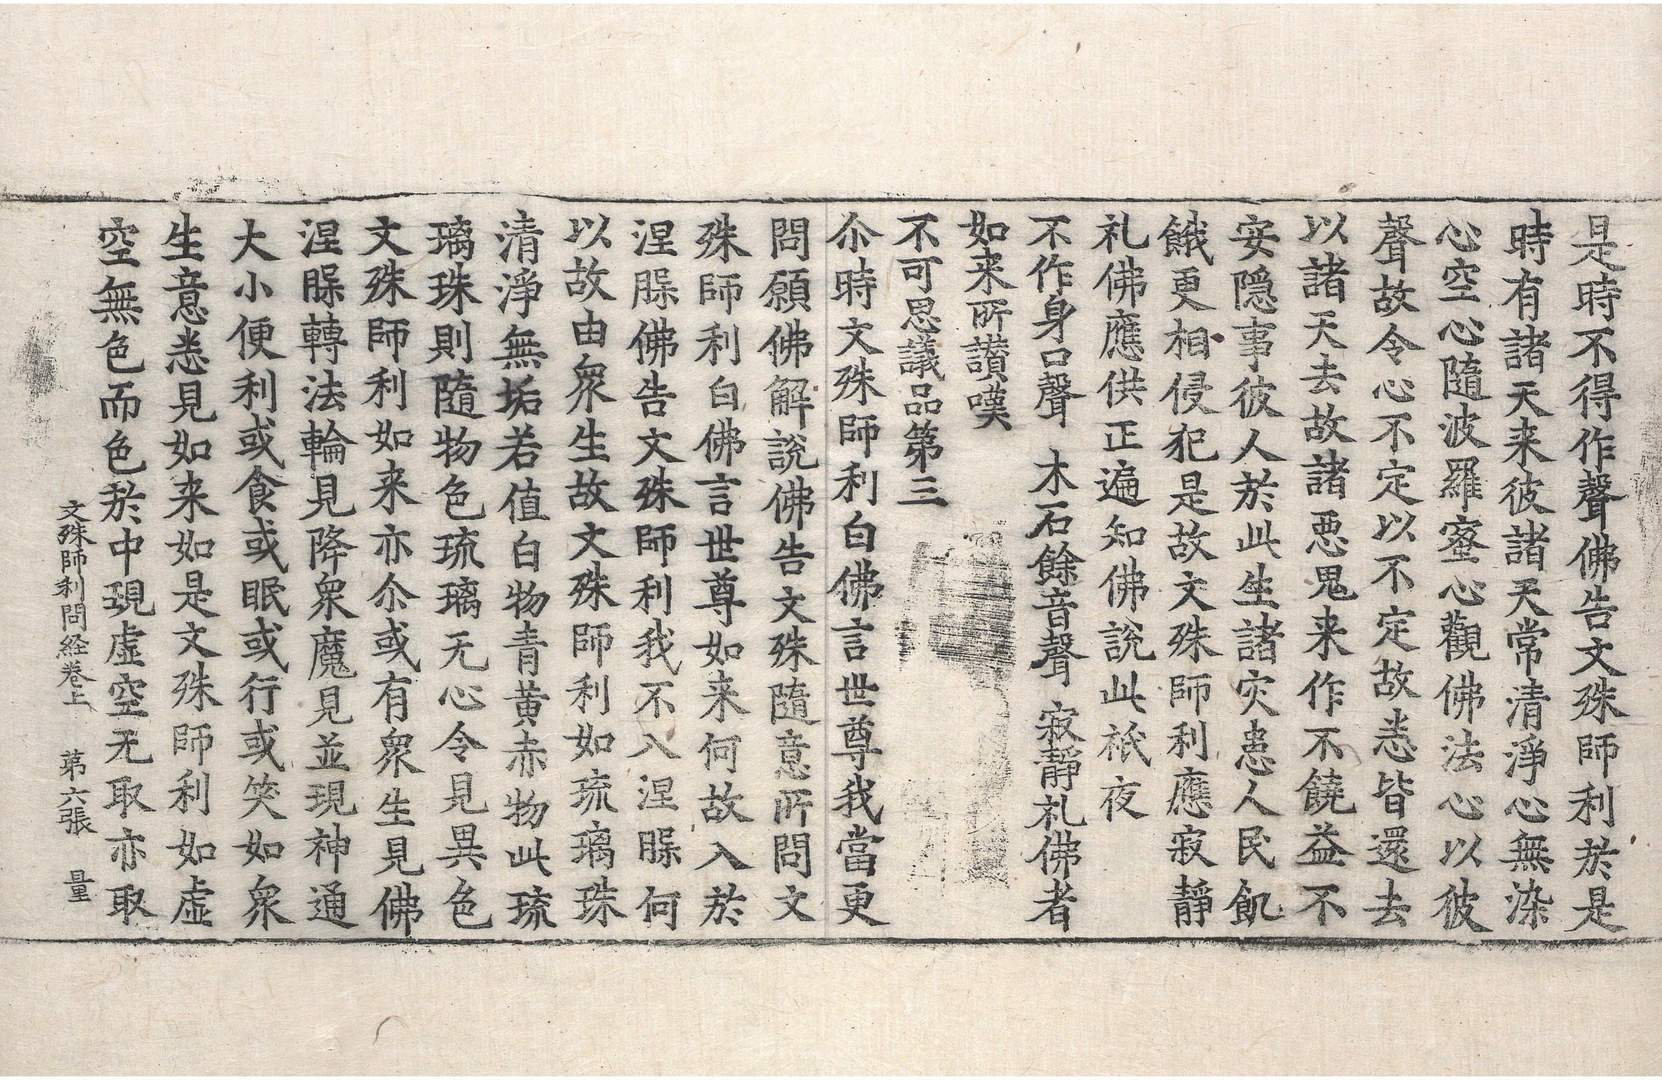 是時不得作聲佛告文殊師利於是
時有諸天来彼諸天常清淨心無染
心空心隨波羅蜜心觀佛法心以彼
聲故令心不定以不定故悉皆還去
以諸天去故諸惡鬼来作不饒益不
安隱事彼人於此生諸灾患人民飢
餓更相侵犯是故文殊師利應寂靜
礼佛應供正遍知佛說此祇夜
不作身口聲 木石餘音聲 寂靜礼佛者
如来所讃嘆
不可思議品第三
尒時文殊師利白佛言世尊我當更
問願佛解說佛告文殊隨意所問文
殊師利白佛言世尊如来何故入於
涅槃佛告文殊師利我不入涅槃何
以故由衆生故文殊師利如琉璃珠
清淨無垢若值白物青黄赤物此琉
璃珠則隨物色琉璃无心令見異色
文殊師利如来亦尒或有衆生見佛
涅槃轉法輪見降衆魔見並現神通
大小便利或食或眠或行或笑如衆
生意悉見如来如是文殊師利如虛
空無色而色於中現虛空无取亦取
文殊師利問経卷上 苐六張 量